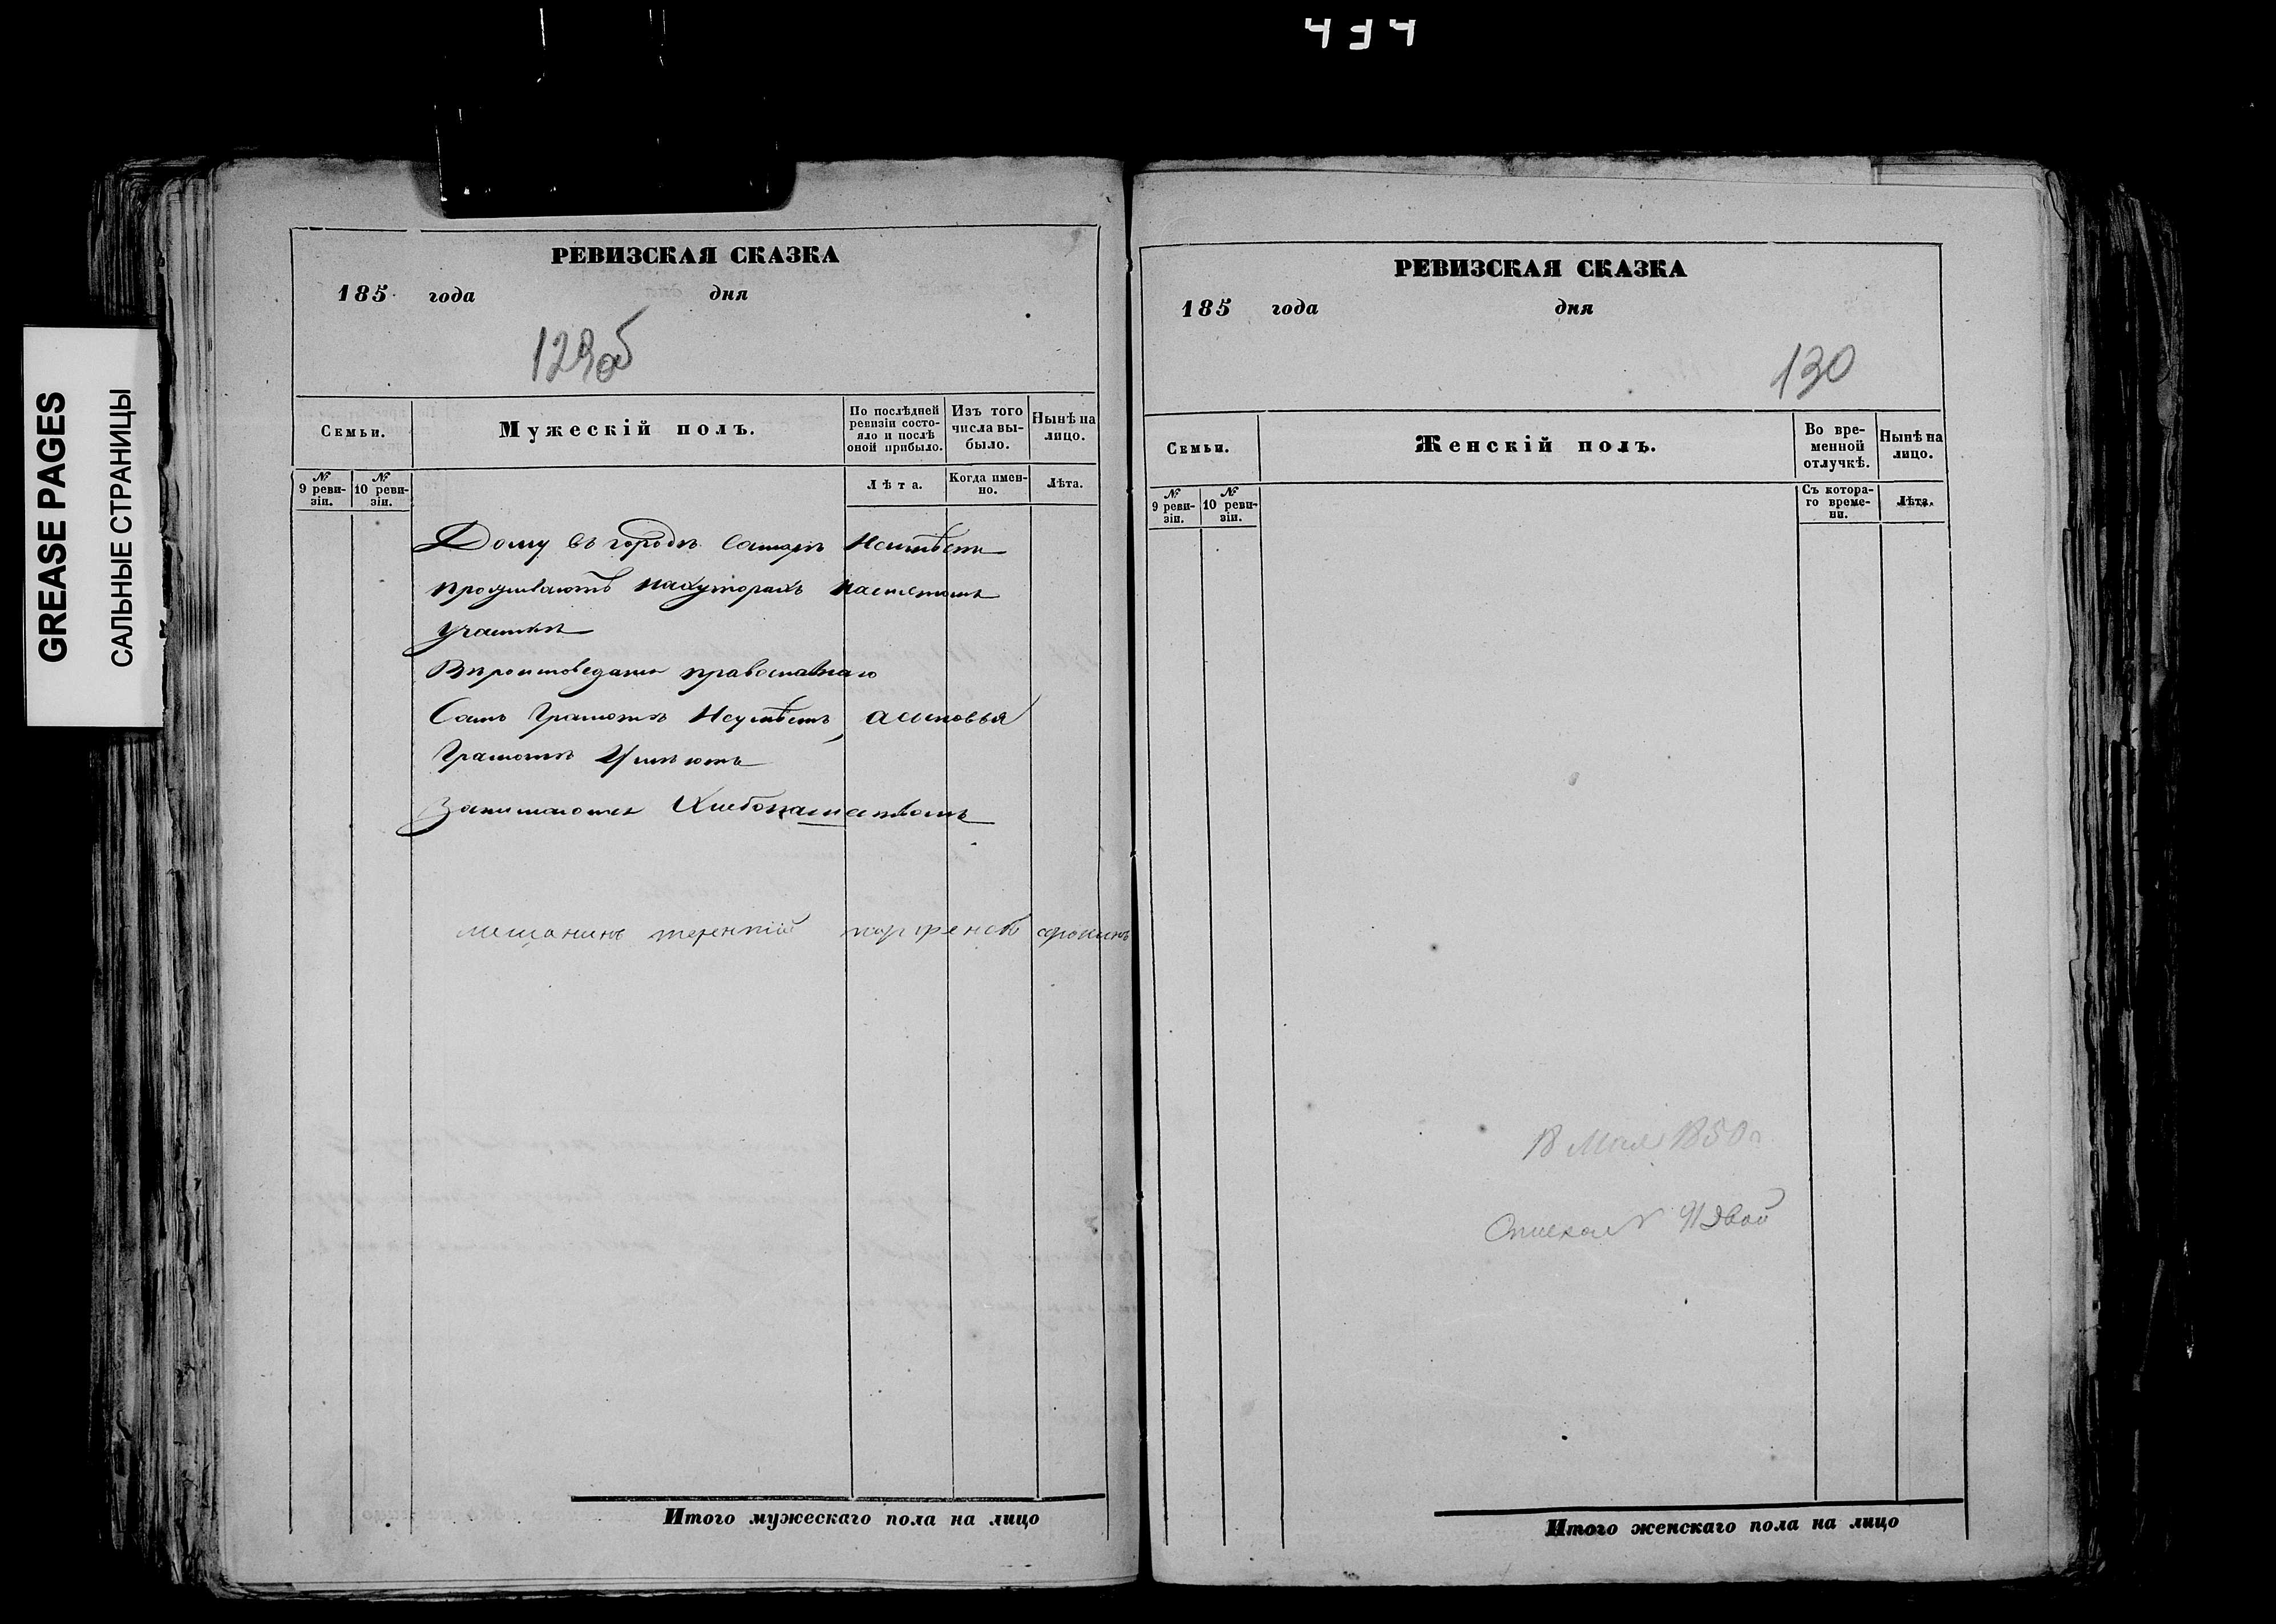 434
GREASE PAGES
САЛЬНЫЕ СТРАНИЦЫ
РЕВИЗСКАЯ СКАЗКА
185 года дня
129об
Семьи.
Мужескій полъ.
По послѣдней ревизіи состояло и послѣ оной прибыло.
Изъ того числа выбыло.
Нынѣ на лицо.
№ 9 ревизіи.
№ 10 ревизіи.
Лѣта.
Когда именно.
Лѣта.
Дому въ городѣ Самарѣ Неимѣетъ
проживаютъ нахуторахъ
участкѣ
Вѣроисповеданы православнаго
Самъ Грамотѣ Неумѣетъ, асыновья
Грамотѣ Умѣютъ
Занимаются Хлебопашествомъ
мещанинъ терентій парфеновъ сорокинъ
Итого мужескаго пола на лицо
РЕВИЗСКАЯ СКАЗКА
185 года дня
130
Семьи.
Женскій полъ.
Во временной отлучкѣ.
Нынѣ на лицо.
№ 9 ревизіи.
№ 10 ревизіи.
Съ котораго времени.
Лѣта.
18 Мая 1850 г
Итого женскаго пола на лицо